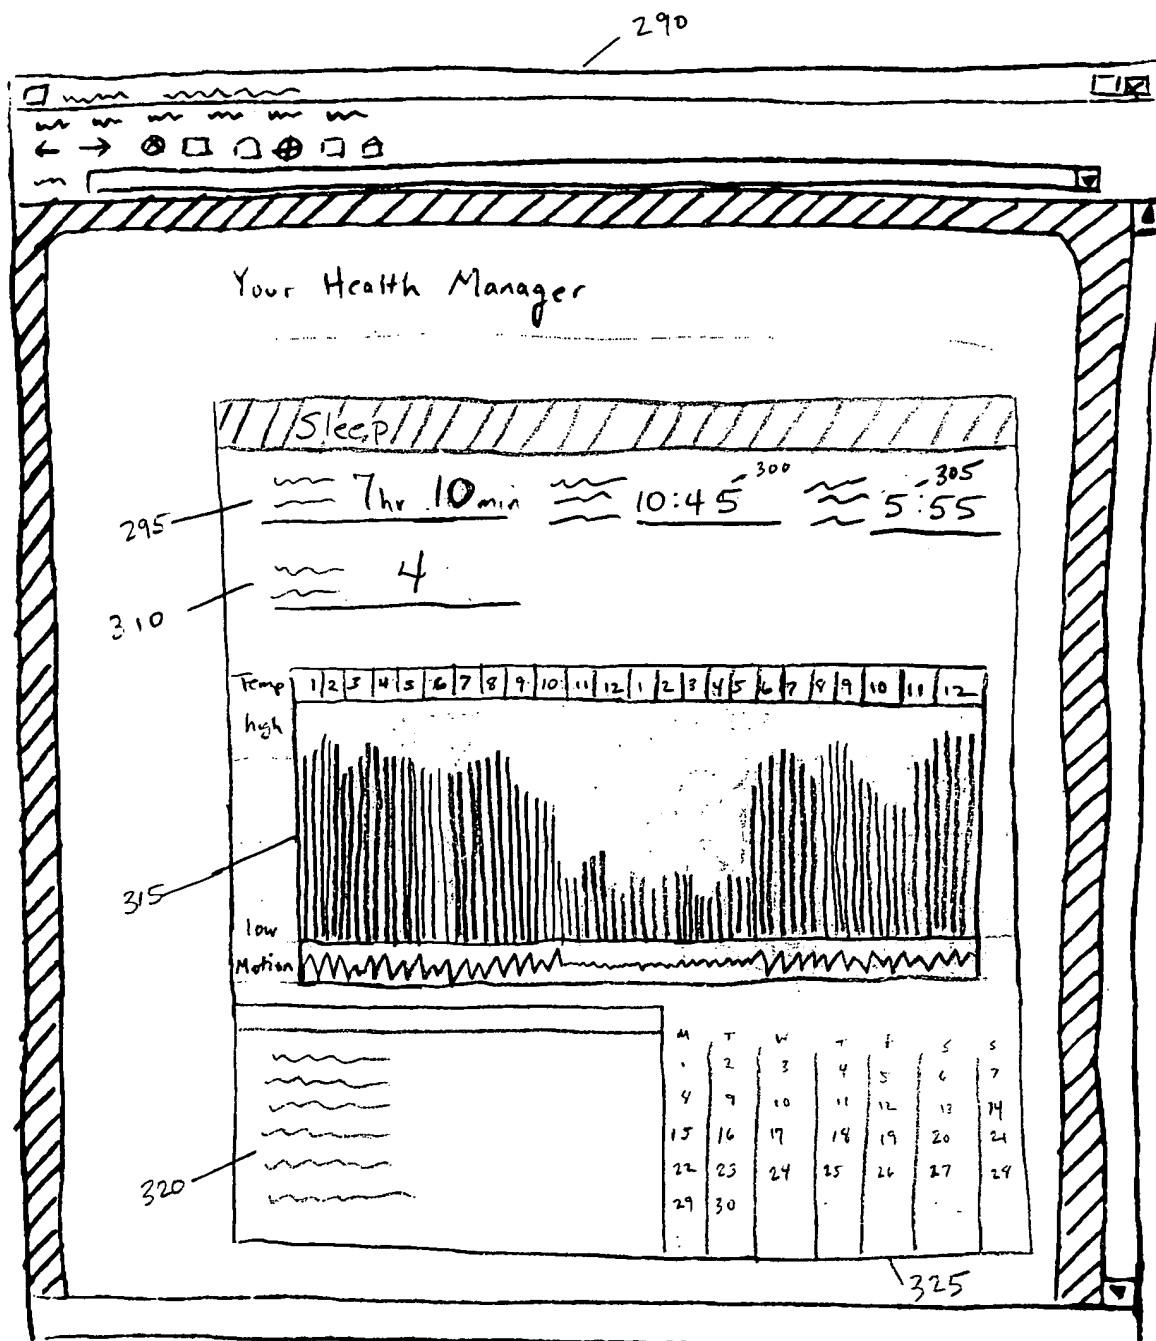 290
Your Health Manager
Sleep
7hr 10min 10:45 300 5:55 305
295
4
310
Temp 1 2 3 4 5 6 7 8 9 10 11 12 1 2 3 4 5 6 7 8 9 10 11 12
high
315
low
Motion
M T W T F S S
1 2 3 4 5 6 7
8 9 10 11 12 13 14
15 16 17 18 19 20 21
22 23 24 25 26 27 28
29 30
320
325